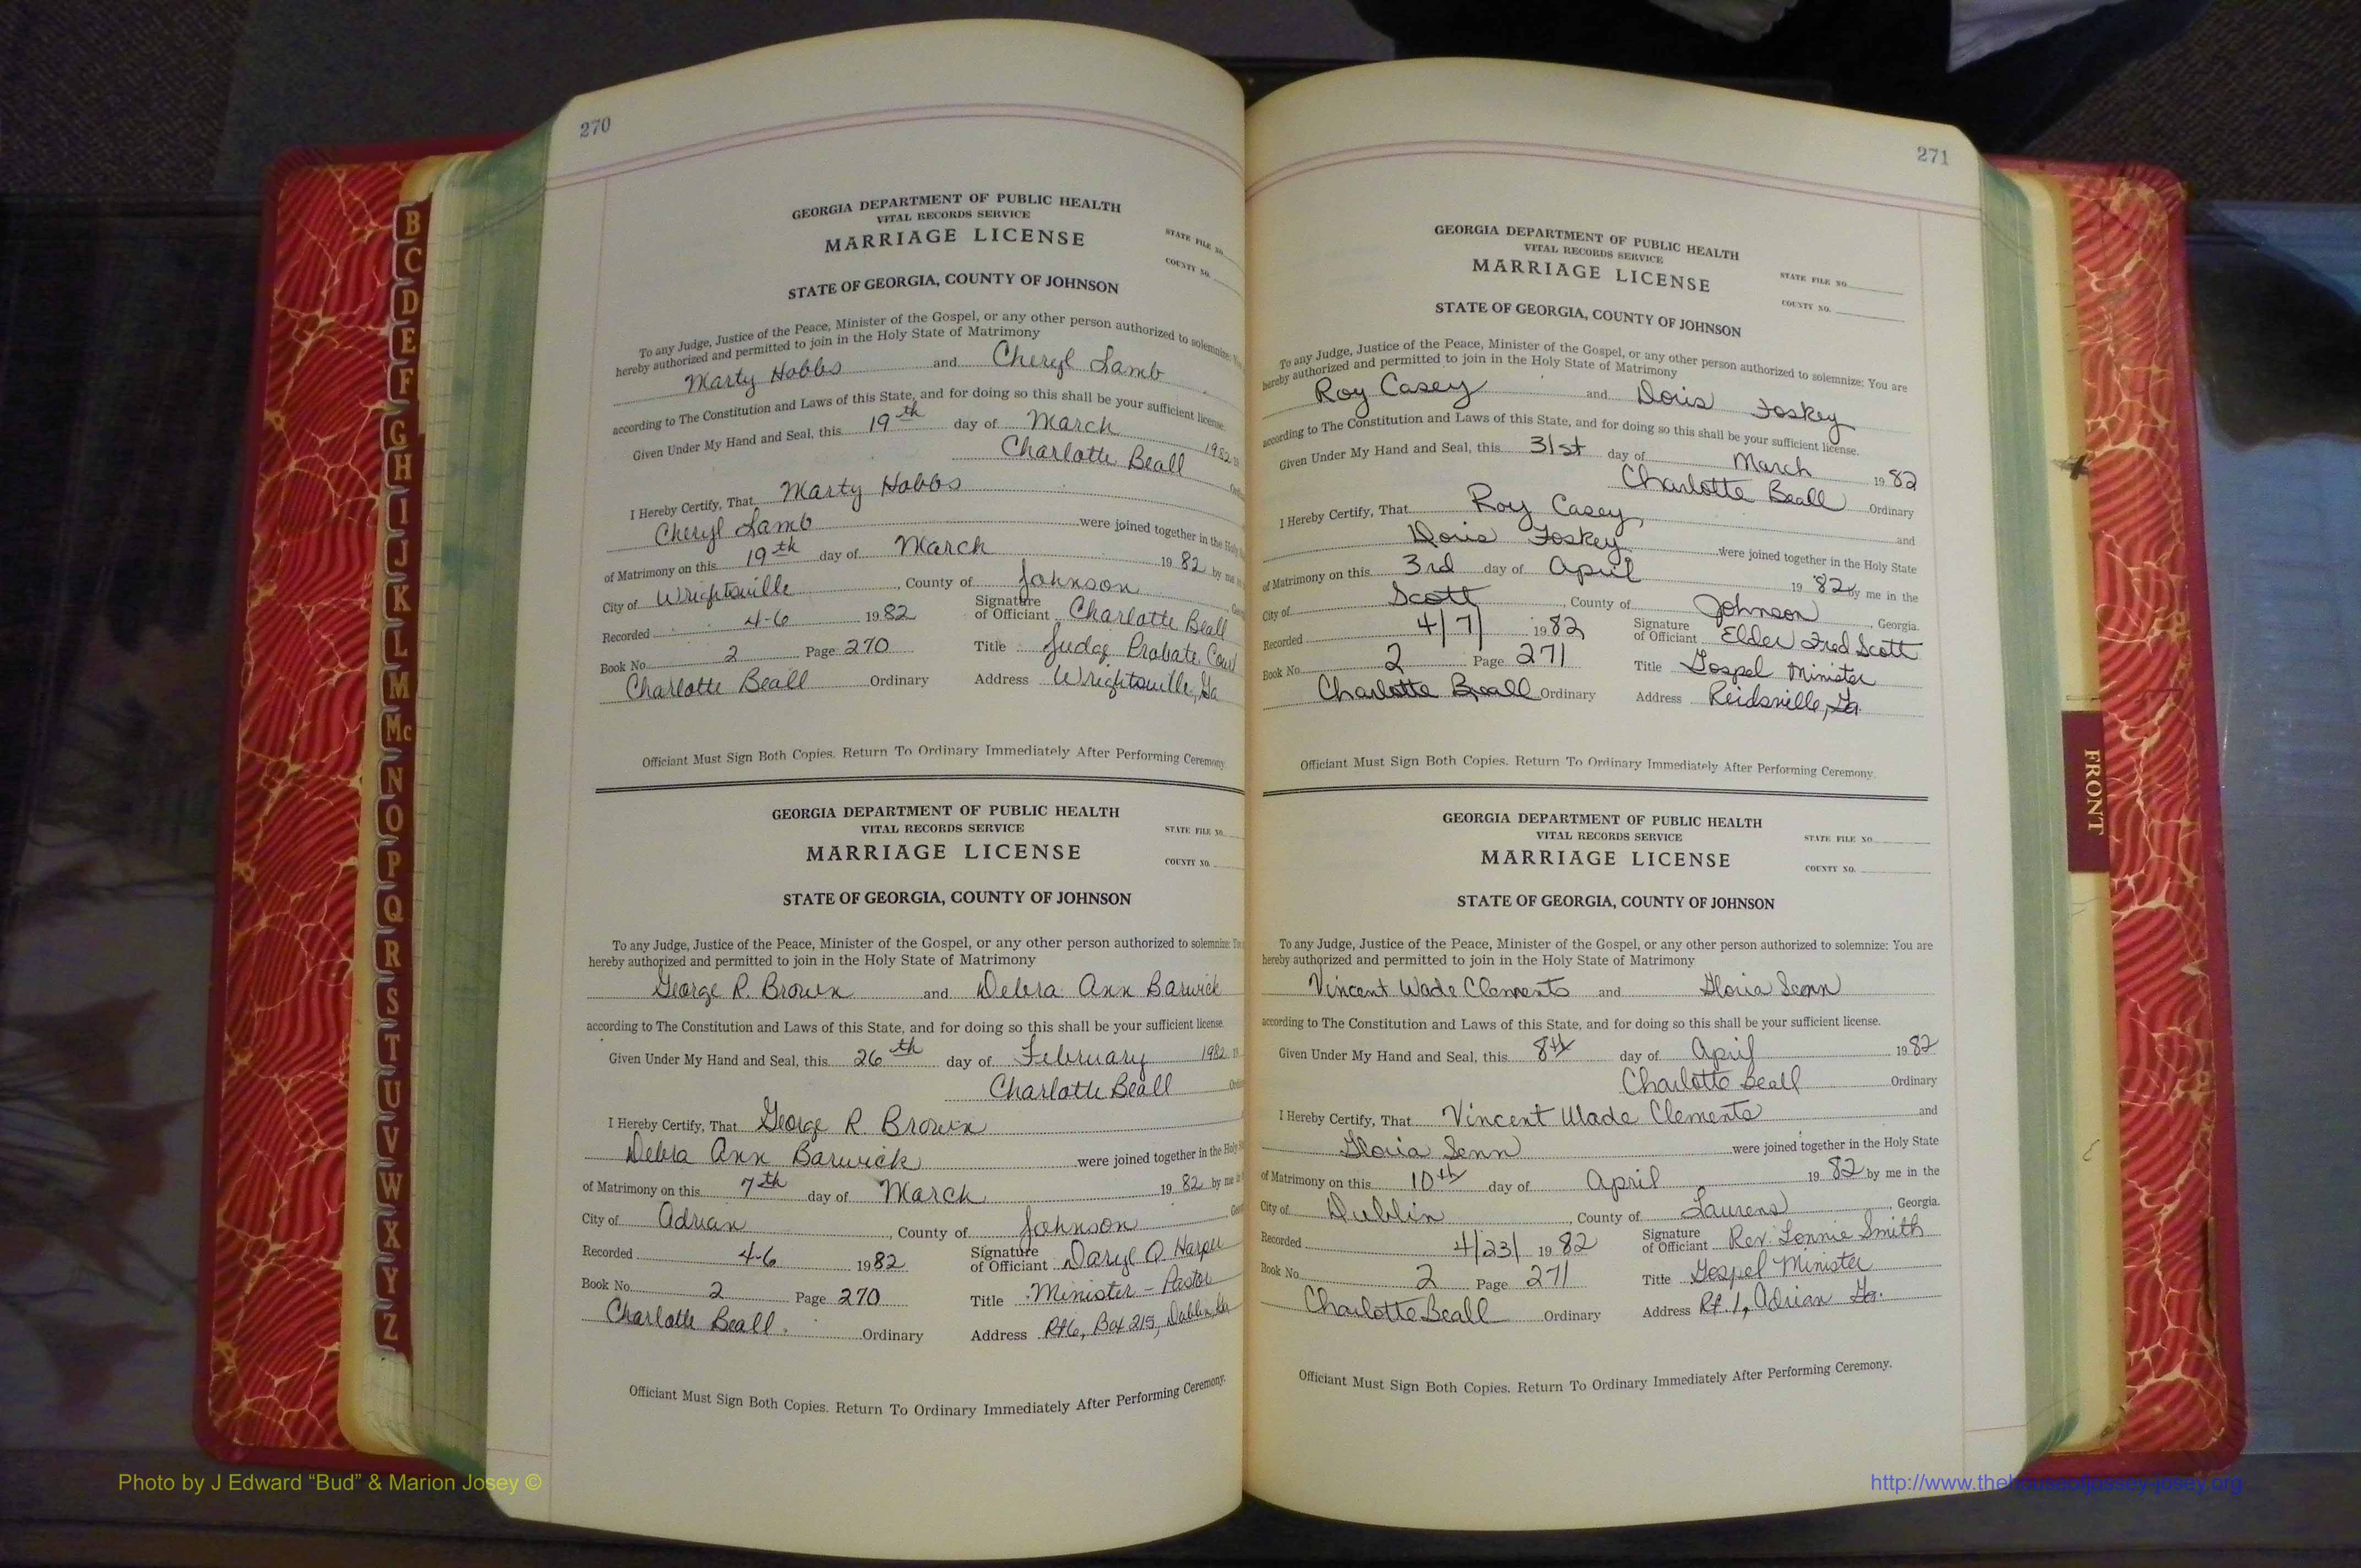 270
GEORGIA DEPARTMENT OF PUBLIC HEALTH
VITAL RECORDS SERVICE
MARRIAGE LICENSE
STATE FILE NO.
COUNTY NO.
STATE OF GEORGIA, COUNTY OF JOHNSON
To any Judge, Justice of the Peace, Minister of the Gospel, or any other person authorized to solemnize:
hereby authorized and permitted to join in the Holy State of Matrimony
Marty Hobbs and Cheryl Lamb
according to The Constitution and Laws of this State, and for doing so this shall be your sufficient license.
Given Under My Hand and Seal, this 19th day of March 1982
Charlotte Beall
I Hereby Certify, That Marty Hobbs
Cheryl Lamb were joined together in the
of Matrimony on this 19th day of March 1982 by me
City of Wrightsville, County of Johnson
Recorded 4-6 1982 Signature of Officiant Charlotte Beall
Book No. 2 Page 270 Title Judge Probate
Charlotte Beall Ordinary Address Wrightsville, Ga
Officiant Must Sign Both Copies. Return To Ordinary Immediately After Performing Ceremony.
GEORGIA DEPARTMENT OF PUBLIC HEALTH
VITAL RECORDS SERVICE
MARRIAGE LICENSE
STATE FILE NO.
COUNTY NO.
STATE OF GEORGIA, COUNTY OF JOHNSON
To any Judge, Justice of the Peace, Minister of the Gospel, or any other person authorized to solemnize:
hereby authorized and permitted to join in the Holy State of Matrimony
George R. Brown and Debra Ann Barwick
according to The Constitution and Laws of this State, and for doing so this shall be your sufficient license.
Given Under My Hand and Seal, this 26th day of February 1982
Charlotte Beall
I Hereby Certify, That George R. Brown
Debra Ann Barwick were joined together in the Holy
of Matrimony on this 7th day of March 1982 by me
City of Adrian, County of Johnson
Recorded 4-6 1982 Signature of Officiant Daryl Q. Harper
Book No. 2 Page 270 Title Minister - Pastor
Charlotte Beall. Ordinary Address Rt 6, Box 215, Dublin, Ga
Officiant Must Sign Both Copies. Return To Ordinary Immediately After Performing Ceremony.
271
GEORGIA DEPARTMENT OF PUBLIC HEALTH
VITAL RECORDS SERVICE
MARRIAGE LICENSE
STATE FILE NO.
COUNTY NO.
STATE OF GEORGIA, COUNTY OF JOHNSON
To any Judge, Justice of the Peace, Minister of the Gospel, or any other person authorized to solemnize: You are
hereby authorized and permitted to join in the Holy State of Matrimony
Roy Casey and Doris Foskey
according to The Constitution and Laws of this State, and for doing so this shall be your sufficient license.
Given Under My Hand and Seal, this 31st day of March 1982
Charlotte Beall Ordinary
I Hereby Certify, That Roy Casey and
Doris Foskey were joined together in the Holy State
of Matrimony on this 3rd day of April 1982 by me in the
City of Scott, County of Johnson, Georgia.
Recorded 4/7/ 1982 Signature of Officiant Elder Fred Scott
Book No. 2 Page 271 Title Gospel Minister
Charlotte Beall Ordinary Address Reidsville, Ga.
Officiant Must Sign Both Copies. Return To Ordinary Immediately After Performing Ceremony.
GEORGIA DEPARTMENT OF PUBLIC HEALTH
VITAL RECORDS SERVICE
MARRIAGE LICENSE
STATE FILE NO.
COUNTY NO.
STATE OF GEORGIA, COUNTY OF JOHNSON
To any Judge, Justice of the Peace, Minister of the Gospel, or any other person authorized to solemnize: You are
hereby authorized and permitted to join in the Holy State of Matrimony
Vincent Wade Clements and Gloria Senn
according to The Constitution and Laws of this State, and for doing so this shall be your sufficient license.
Given Under My Hand and Seal, this 8th day of April 1982
Charlotte Beall Ordinary
I Hereby Certify, That Vincent Wade Clements and
Gloria Senn were joined together in the Holy State
of Matrimony on this 10th day of April 1982 by me in the
City of Dublin, County of Laurens, Georgia.
Recorded 4/23/ 1982 Signature of Officiant Rev. Lonnie Smith
Book No. 2 Page 271 Title Gospel Minister
Charlotte Beall Ordinary Address Rt. 1, Adrian Ga.
Officiant Must Sign Both Copies. Return To Ordinary Immediately After Performing Ceremony.
B
C
D
E
F
G
H
I
J
K
L
M
Mc
N
O
P
Q
R
S
T
U
V
W
X
Y
Z
FRONT
Photo by J Edward “Bud” & Marion Josey ©
http://www.thehouseofjossey-josey.org